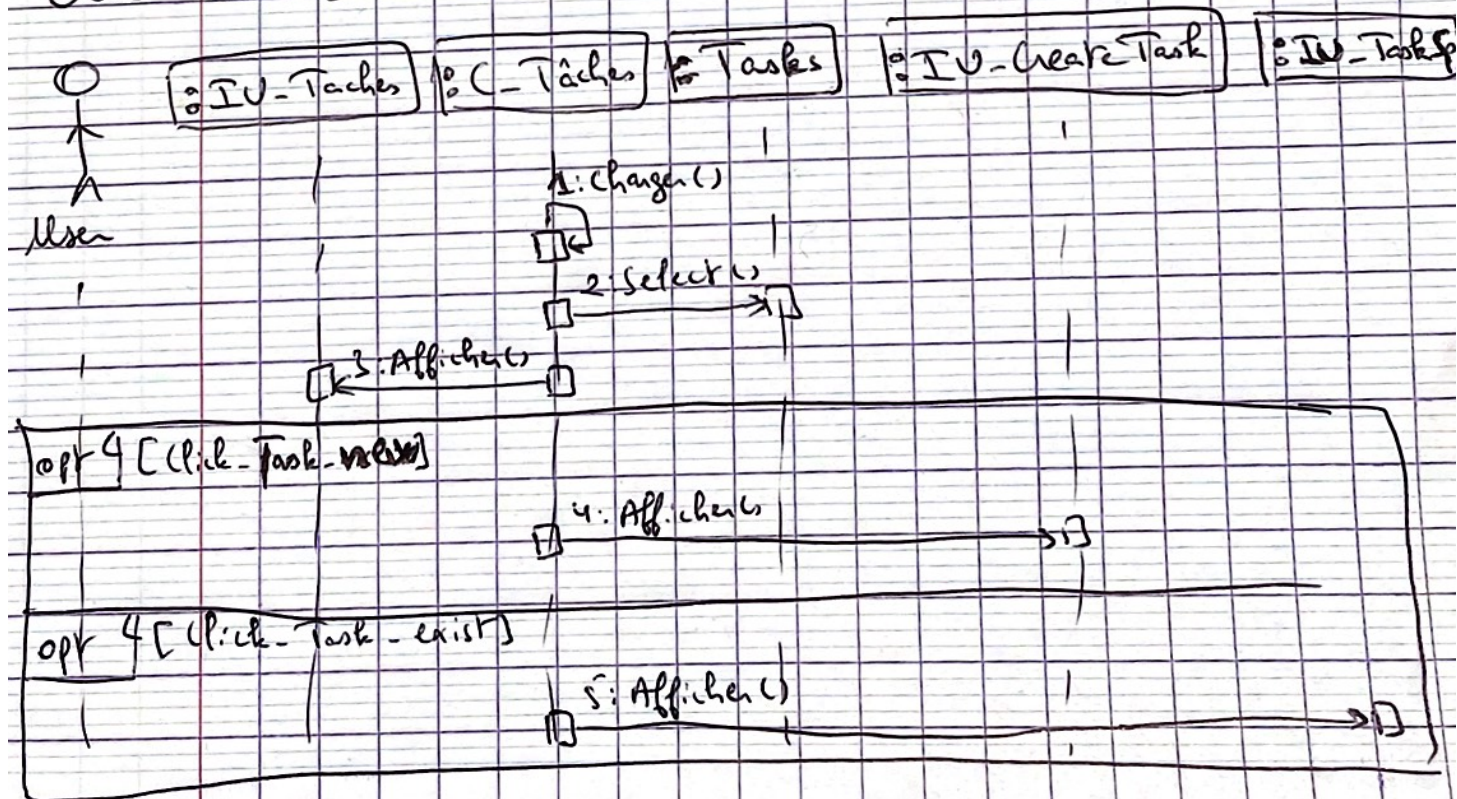 :IU_Taches :C_Tâches :Tasks :IU_CreateTask :IU_TaskSp
User
1: Charger()
2: Select()
3: Afficher()
opt [Click_Task_
4: Afficher()
opt [Click_Task_exist]
5: Afficher()